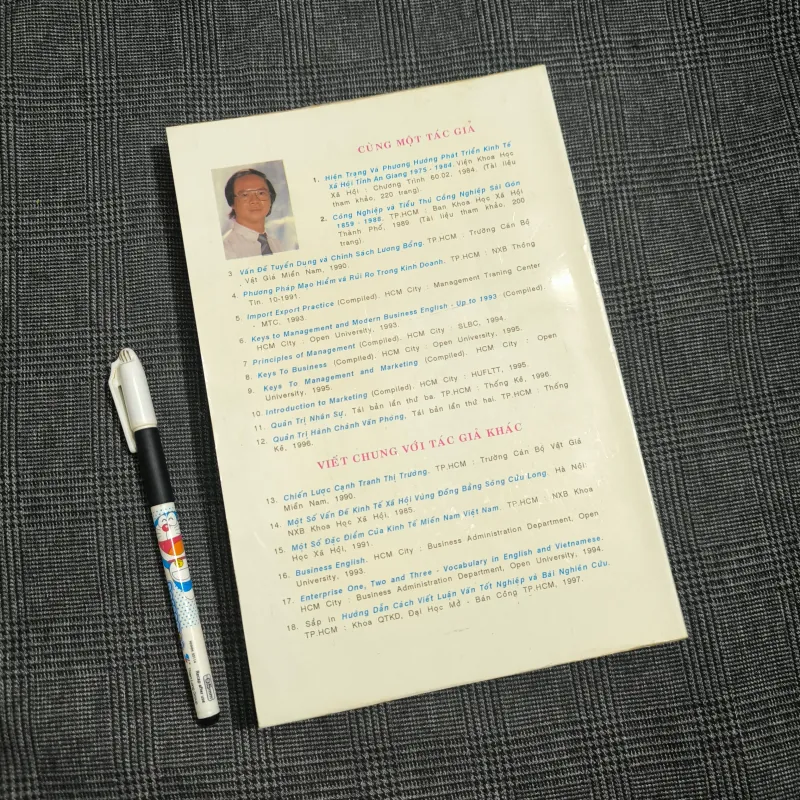 CÙNG MỘT TÁC GIẢ
1. Hiện Trạng Và Phương Hướng Phát Triển Kinh Tế
Xã Hội Tỉnh An Giang 1975 - 1984. Viện Khoa Học
Xã Hội : Chương Trình 60.02. 1984. (Tài liệu
tham khảo, 220 trang).
2. Công Nghiệp và Tiểu Thủ Công Nghiệp Sài Gòn
1859 - 1988. TP.HCM : Ban Khoa Học Xã Hội
Thành Phố, 1989. (Tài liệu tham khảo, 200
trang).
3 Vấn Đề Tuyển Dụng và Chính Sách Lương Bổng. TP.HCM : Trường Cán Bộ
Vật Giá Miền Nam, 1990.
4. Phương Pháp Mạo Hiểm và Rủi Ro Trong Kinh Doanh. TP.HCM : NXB Thống
Tin. 10-1991.
5. Import Export Practice (Compiled). HCM City : Management Traning Center
- MTC. 1993.
6. Keys to Management and Modern Business English - Up to 1993 (Compiled).
HCM City : Open University, 1993.
7 Principles of Management (Compiled). HCM City : SLBC, 1994.
8. Keys To Business (Compiled). HCM City : Open University, 1995.
9. Keys To Management and Marketing (Compiled). HCM City : Open
University, 1995.
10. Introduction to Marketing (Compiled). HCM City : HUFLTT, 1995.
11. Quản Trị Nhân Sự. Tái bản lần thứ ba. TP.HCM : Thống Kê, 1996.
12. Quản Trị Hành Chánh Văn Phòng, Tái bản lần thứ hai. TP.HCM : Thống
Kê, 1996.
VIẾT CHUNG VỚI TÁC GIẢ KHÁC
13. Chiến Lược Cạnh Tranh Thị Trường. TP.HCM : Trường Cán Bộ Vật Giá
Miền Nam, 1990.
14. Một Số Vấn Đề Kinh Tế Xã Hội Vùng Đồng Bằng Sông Cửu Long. Hà Nội:
NXB Khoa Học Xã Hội, 1985.
15. Một Số Đặc Điểm Của Kinh Tế Miền Nam Việt Nam. TP.HCM : NXB Khoa
Học Xã Hội, 1991.
16. Business English. HCM City : Business Administration Department. Open
University, 1993.
17. Enterprise One, Two and Three - Vocabulary in English and Vietnamese.
HCM City : Business Administration Department, Open University, 1994.
18. Sắp in Hướng Dẫn Cách Viết Luận Văn Tốt Nghiệp và Bài Nghiên Cứu.
TP.HCM : Khoa QTKD, Đại Học Mở - Bán Công TP.HCM, 1997.